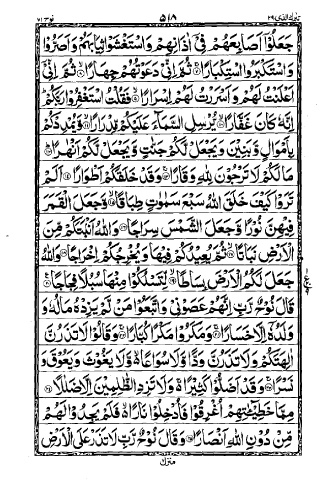 تبٰرک الذی ۲۹ ۵۱۸ نوح ۷۱
جَعَلُوْۤا اَصَابِعَهُمْ فِیْۤ اٰذَانِهِمْ وَاسْتَغْشَوْا ثِیَابَهُمْ وَاَصَرُّوْا
وَاسْتَكْبَرُوا اسْتِكْبَارًا ۚ ثُمَّ اِنِّیْ دَعَوْتُهُمْ جِهَارًا ۙ ثُمَّ اِنِّیْۤ
اَعْلَنْتُ لَهُمْ وَاَسْرَرْتُ لَهُمْ اِسْرَارًا ۙ فَقُلْتُ اسْتَغْفِرُوْا رَبَّكُمْ
اِنَّهٗ كَانَ غَفَّارًا ۙ یُّرْسِلِ السَّمَآءَ عَلَیْكُمْ مِّدْرَارًا ۙ وَّیُمْدِدْكُمْ
بِاَمْوَالٍ وَّبَنِیْنَ وَیَجْعَلْ لَّكُمْ جَنّٰتٍ وَّیَجْعَلْ لَّكُمْ اَنْهٰرًا ؕ
مَا لَكُمْ لَا تَرْجُوْنَ لِلّٰهِ وَقَارًا ۚ وَقَدْ خَلَقَكُمْ اَطْوَارًا ؕ اَلَمْ
تَرَوْا كَیْفَ خَلَقَ اللّٰهُ سَبْعَ سَمٰوٰتٍ طِبَاقًا ۙ وَّجَعَلَ الْقَمَرَ
فِیْهِنَّ نُوْرًا وَّجَعَلَ الشَّمْسَ سِرَاجًا ؕ وَاللّٰهُ اَنْۢبَتَكُمْ مِّنَ
الْاَرْضِ نَبَاتًا ۙ ثُمَّ یُعِیْدُكُمْ فِیْهَا وَیُخْرِجُكُمْ اِخْرَاجًا ؕ وَاللّٰهُ
جَعَلَ لَكُمُ الْاَرْضَ بِسَاطًا ۙ لِّتَسْلُكُوْا مِنْهَا سُبُلًا فِجَاجًا ؕ
قَالَ نُوْحٌ رَّبِّ اِنَّهُمْ عَصَوْنِیْ وَاتَّبَعُوْا مَنْ لَّمْ یَزِدْهُ مَالُهٗ وَ
وَلَدُهٗۤ اِلَّا خَسَارًا ۚ وَمَكَرُوْا مَكْرًا كُبَّارًا ۚ وَقَالُوْا لَا تَذَرُنَّ
اٰلِهَتَكُمْ وَلَا تَذَرُنَّ وَدًّا وَّلَا سُوَاعًا ۙ وَّلَا یَغُوْثَ وَیَعُوْقَ وَ
نَسْرًا ۚ وَقَدْ اَضَلُّوْا كَثِیْرًا ۚ وَلَا تَزِدِ الظّٰلِمِیْنَ اِلَّا ضَلٰلًا
مِمَّا خَطِیْٓـٰٔتِهِمْ اُغْرِقُوْا فَاُدْخِلُوْا نَارًا ۙ فَلَمْ یَجِدُوْا لَهُمْ
مِّنْ دُوْنِ اللّٰهِ اَنْصَارًا وَقَالَ نُوْحٌ رَّبِّ لَا تَذَرْ عَلَی الْاَرْضِ
منزل